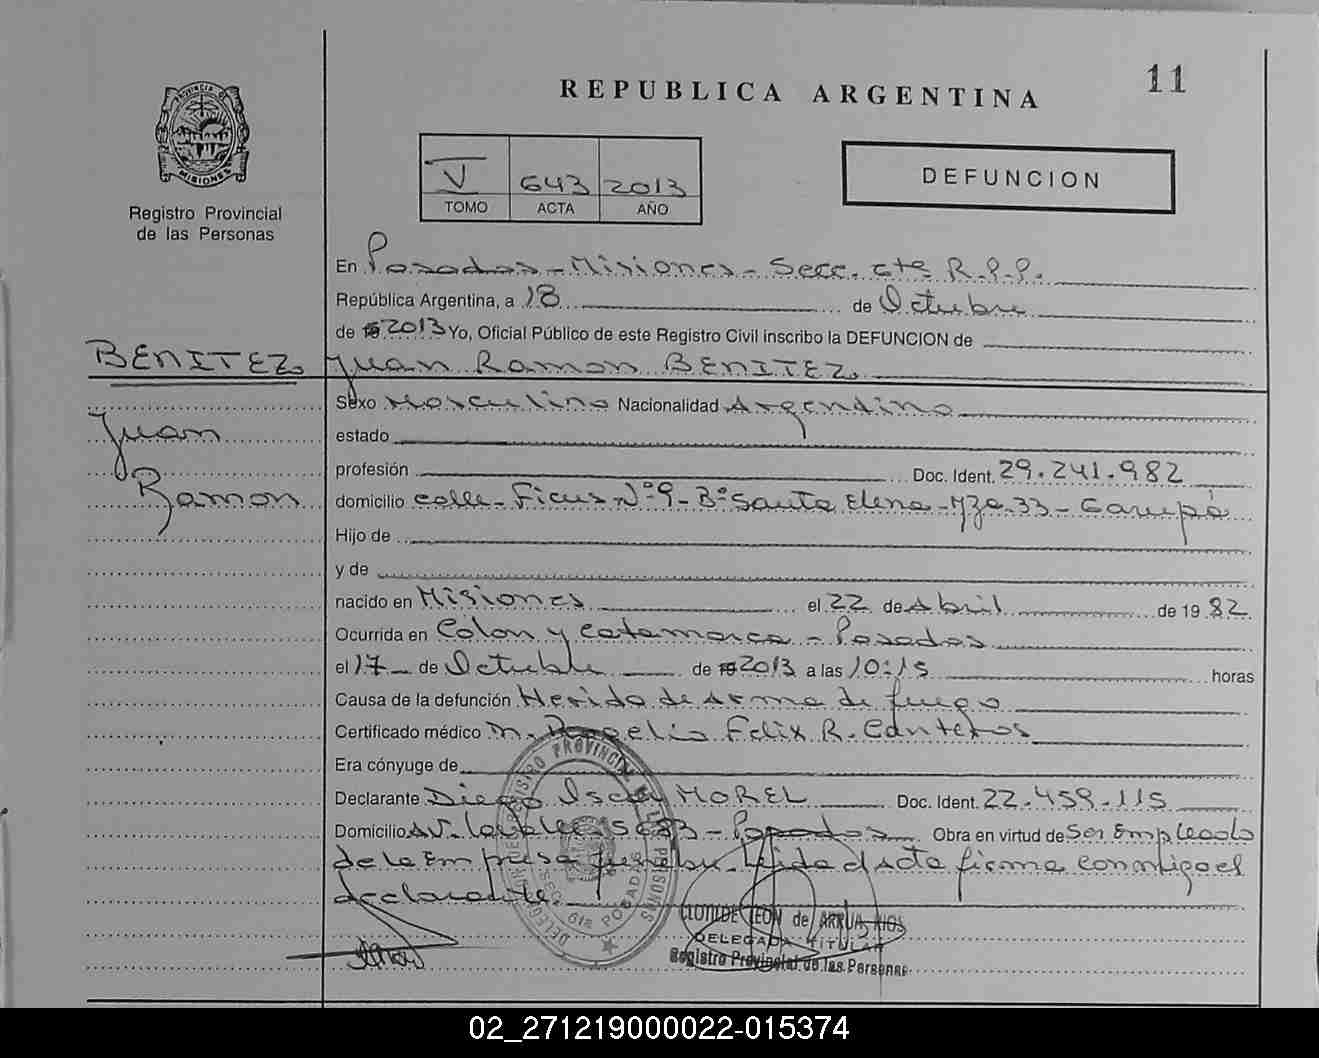 11
REPUBLICA ARGENTINA
PROVINCIA DE
MISIONES
Registro Provincial
de las Personas
V 643 2013
TOMO ACTA AÑO
DEFUNCION
En Posadas - Misiones - Secc. 6ta R.P.P.
República Argentina, a 18 de Octubre
de 19 2013 Yo, Oficial Público de este Registro Civil inscribo la DEFUNCION de
BENITEZ Juan Ramon BENITEZ
Sexo Masculino Nacionalidad Argentino
Juan
estado
profesión Doc. Ident. 29.241.982
Ramon
domicilio calle - Ficus Nº 9 - Bº Santa Elena - Mza. 33 - Garupá
Hijo de
y de
nacido en Misiones el 22 de Abril de 19 82
Ocurrida en Colon y Catamarca - Posadas
el 17 de Octubre de 19 2013 a las 10:15 horas
Causa de la defunción Herida de Arma de fuego
Certificado médico Rogelio Felix R. Canteros
Era cónyuge de
Declarante Diego Oscar MOREL Doc. Ident. 22.459.115
Domicilio AV. Lavalle 5683 - Posadas Obra en virtud de Ser Empleado
de la Empresa funebre. Leida el acta firma conmigo el
declarante
CLOTILDE LEON de ARRUA RIOS
DELEGADA TITULAR
Registro Provincial de las Personas
02_271219000022-015374